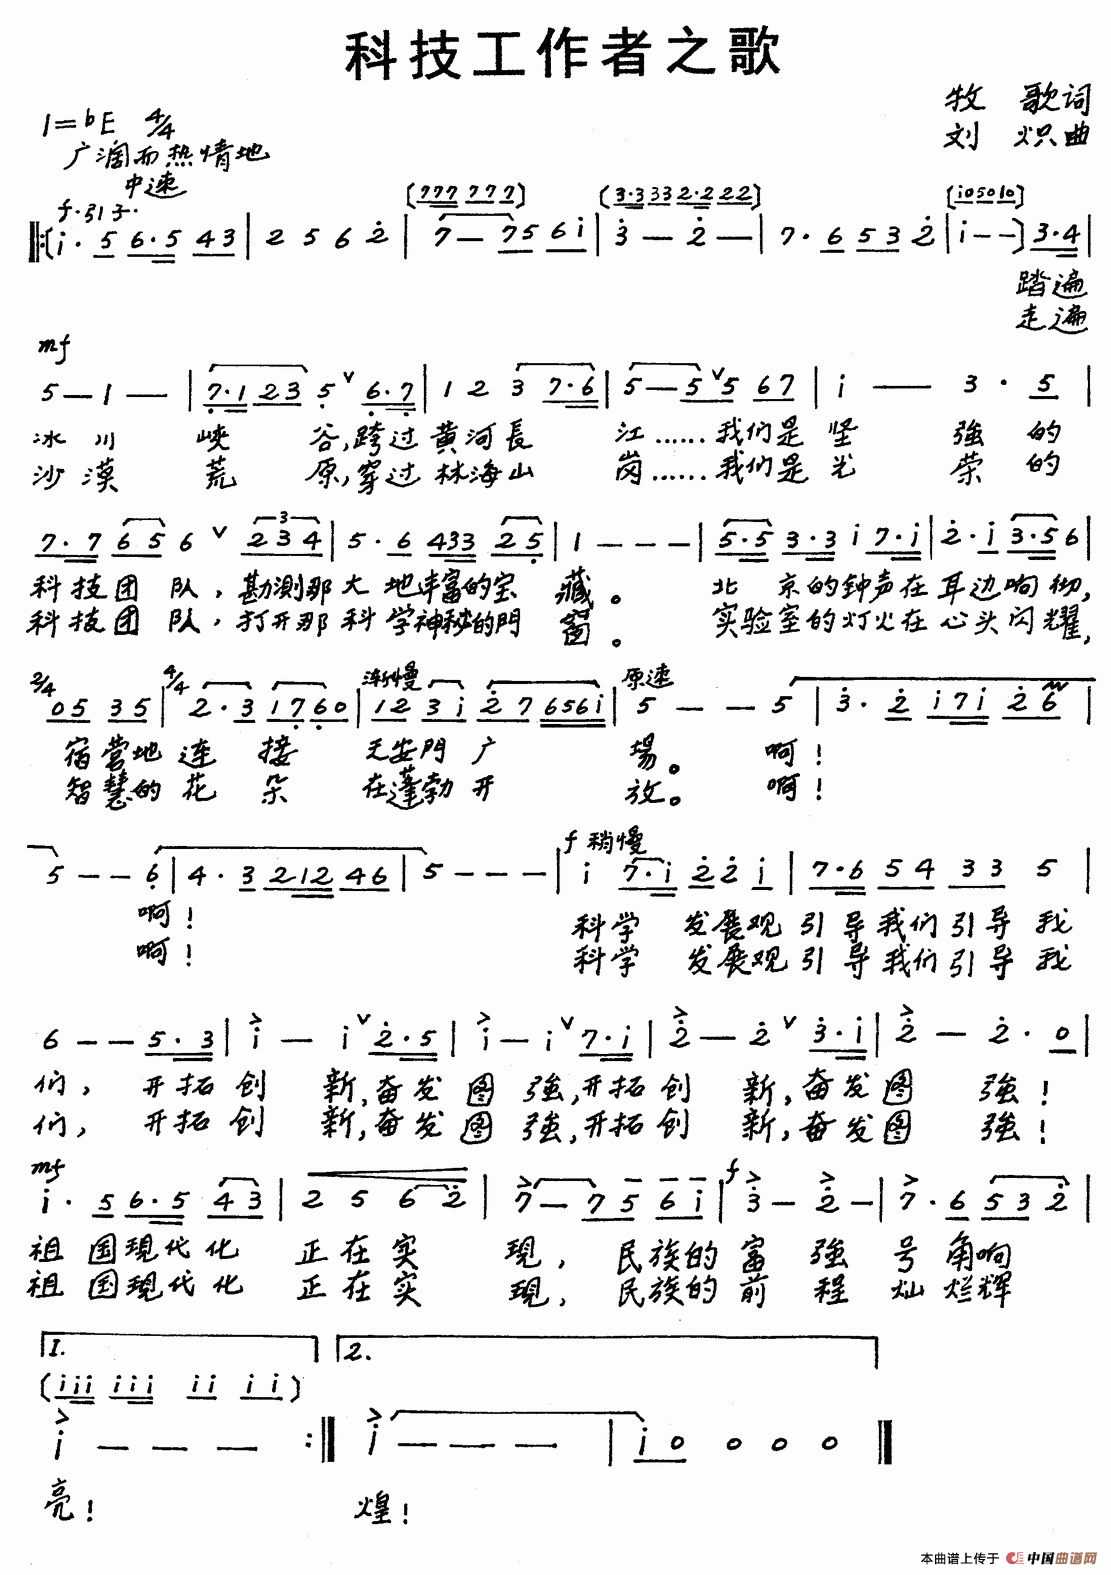 科技工作者之歌
牧 歌词
1=♭E 4/4
刘 炽曲
广阔而热情地
中速
f·引子·
(777 777) (3·3 33 2·2 22) (i050i0)
‖:(i· 5 6·5 4 3 | 2 5 6 2̇ | 7 — 7 5 6 i | 3̇ — 2̇ — | 7· 6 5 3 2̇ | i — —) 3·4 |
踏遍
走遍
mf
5 — 1 — | 7·1 2 3 5 ∨ 6·7 | 1 2 3 7·6 | 5 — 5 ∨ 5 6 7 | i — 3· 5 |
冰川 峡 谷,跨过黄河長 江……我们是坚 強 的
沙漠 荒 原,穿过林海山 岗……我们是光 荣 的
7·7 6 5 6 ∨ 2 3 4 | 5· 6 4 3 3 2 5 | 1 — — — | 5·5 3·3 i 7·i | 2̇· i 3·5 6 |
科技团 队,勘测那大地丰富的宝 藏。 北 京的钟声在耳边响彻,
科技团 队,打开那科学神秘的門 窗。 实验室的灯火在心头闪耀,
2/4 4/4 渐慢 原速
0 5 3 5 | 2· 3 1 7 6 0 | 1 2 3 i 2̇ 7 6 5 6 i | 5 — — 5 | 3̇· 2̇ i 7 i 2̇ 6 |
宿营地连 接 天安門广 場。 啊!
智慧的花 朵 在蓬勃开 放。 啊!
f 稍慢
5 — — 6 | 4· 3 2 1 2 4 6 | 5 — — — | i 7·i 2̇ 2̇ i | 7·6 5 4 3 3 5 |
啊! 科学 发展观引导我们引导我
啊! 科学 发展观引导我们引导我
6 — — 5·3 | i — i ∨ 2̇·5 | i — i ∨ 7·i | 2̇ — 2̇ ∨ 3̇·i | 2̇ — 2̇· 0 |
们, 开拓创 新,奋发图 強,开拓创 新,奋发图 強!
们, 开拓创 新,奋发图 強,开拓创 新,奋发图 強!
mf f
i· 5 6·5 4 3 | 2 5 6 2̇ | 7 — 7 5 6 i | 3̇ — 2̇ — | 7· 6 5 3 2̇ |
祖国現代化 正在实 現, 民族的富 強 号角响
祖国現代化 正在实 現, 民族的前 程 灿烂辉
1. 2.
(i i i i i i i i i i)
i — — — :‖ i — — — | i 0 0 0 0 ‖
亮! 煌!
本曲谱上传于 中国曲谱网